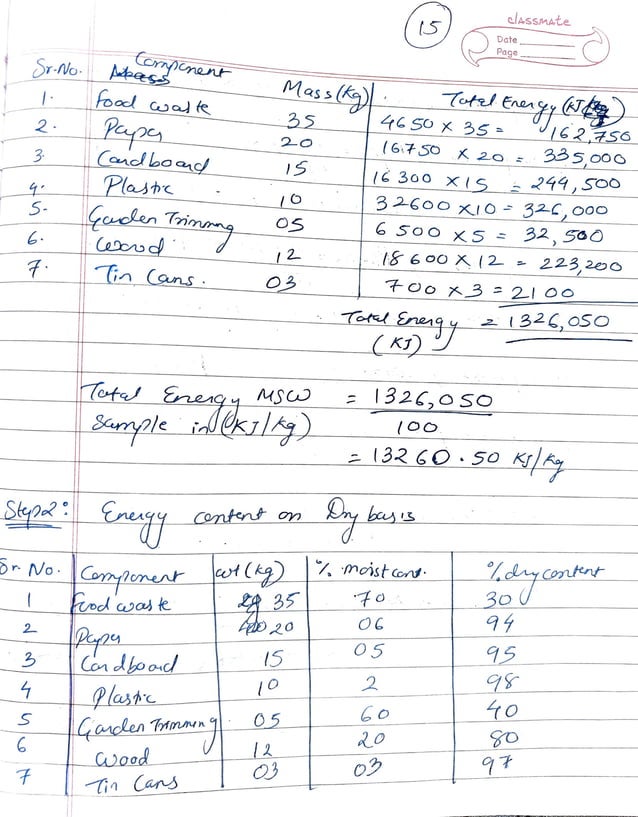 15
classmate
Date
Page
Sr.No. Component Mass(Kg) Total Energy (KJ)
1. Food waste 35 4650 x 35 = 162,750
2. Paper 20 16750 x 20 = 335,000
3. Cardboard 15 16300 x 15 = 244,500
4. Plastic 10 32600 x 10 = 326,000
5. Garden Trimming 05 6500 x 5 = 32,500
6. Wood 12 18600 x 12 = 223,200
7. Tin Cans. 03 700 x 3 = 2100
Total Energy = 1326,050
(KJ)
Total Energy MSW = 1326,050
Sample in (KJ/kg) 100
= 13260.50 KJ/kg
Step2: Energy content on Dry basis
Sr No. Component wt (kg) % moist cont. % dry content
1 Food waste 35 70 30
2 Paper 20 06 94
3 Cardboard 15 05 95
4 Plastic 10 2 98
5 Garden Trimming 05 60 40
6 Wood 12 20 80
7 Tin Cans 03 03 97